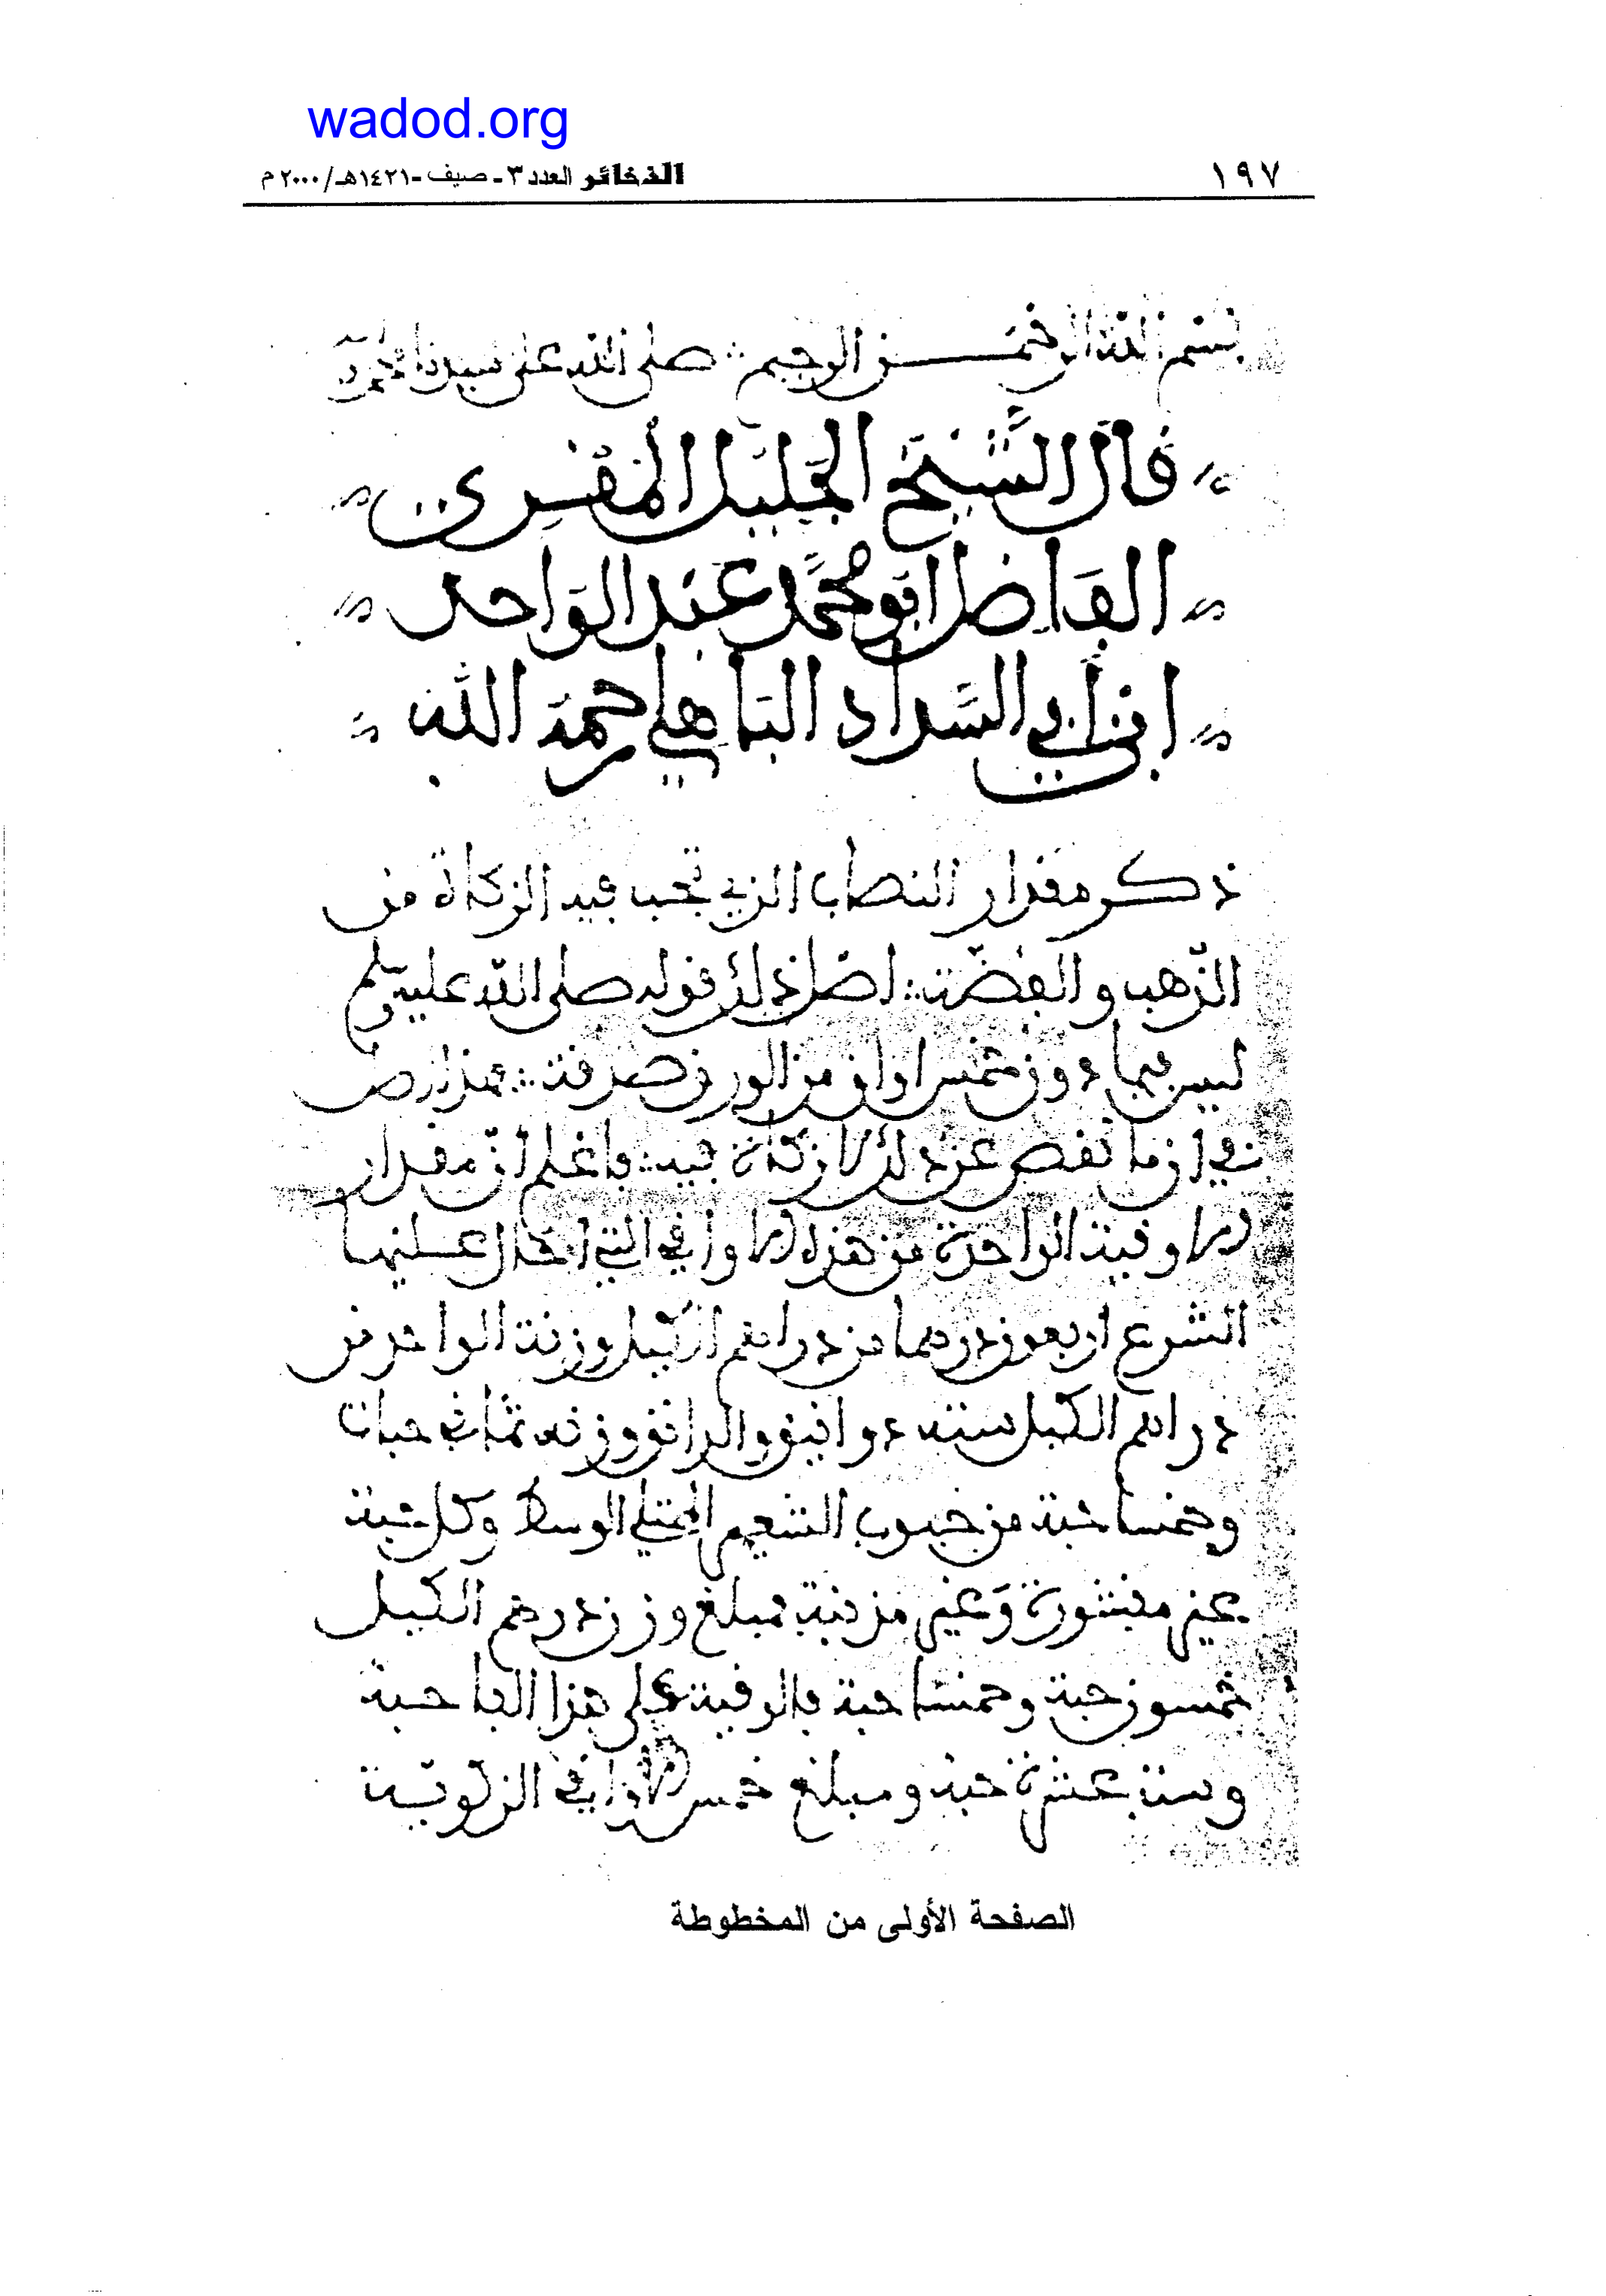 wadod.org
١٩٧
الذخائر العدد ٣ - صيف - ١٤٢١هـ/٢٠٠٠م
بسم الله الرحمن الرحيم صلى الله على سيدنا محمد
قال الشيخ الجليل المقرئ
الفاضل ابو محمد عبد الواحد
ابن ابي السداد الباهلي رحمة الله
ذكر مقدار النصاب الذي تجب فيه الزكاة من
الذهب والفضة اصل ذلك قوله صلى الله عليه وسلم
ليس فيما دون خمس اواق من الورق صدقة فهذا نص
في ان ما نقص عن ذلك لا زكاة فيه فاعلم أن مقدار
الاوقية الواحدة من هذه الاواقي التي احال عليها
الشرع اربعون درهما من دراهم الكيل وزنة الواحد من
دراهم الكيل ستة دوانيق والدانق وزنه ثماني حبات
وخمسا حبة من حبوب الشعير الممتلي الوسط وكل حبة
غير مقشورة وغير مزنبة فمبلغ وزن درهم الكيل
خمسون حبة وخمسا حبة فالوقية على هذا الفا حبة
وستة عشرة حبة ومبلغ خمس الاواقي الزكوية
الصفحة الأولى من المخطوطة